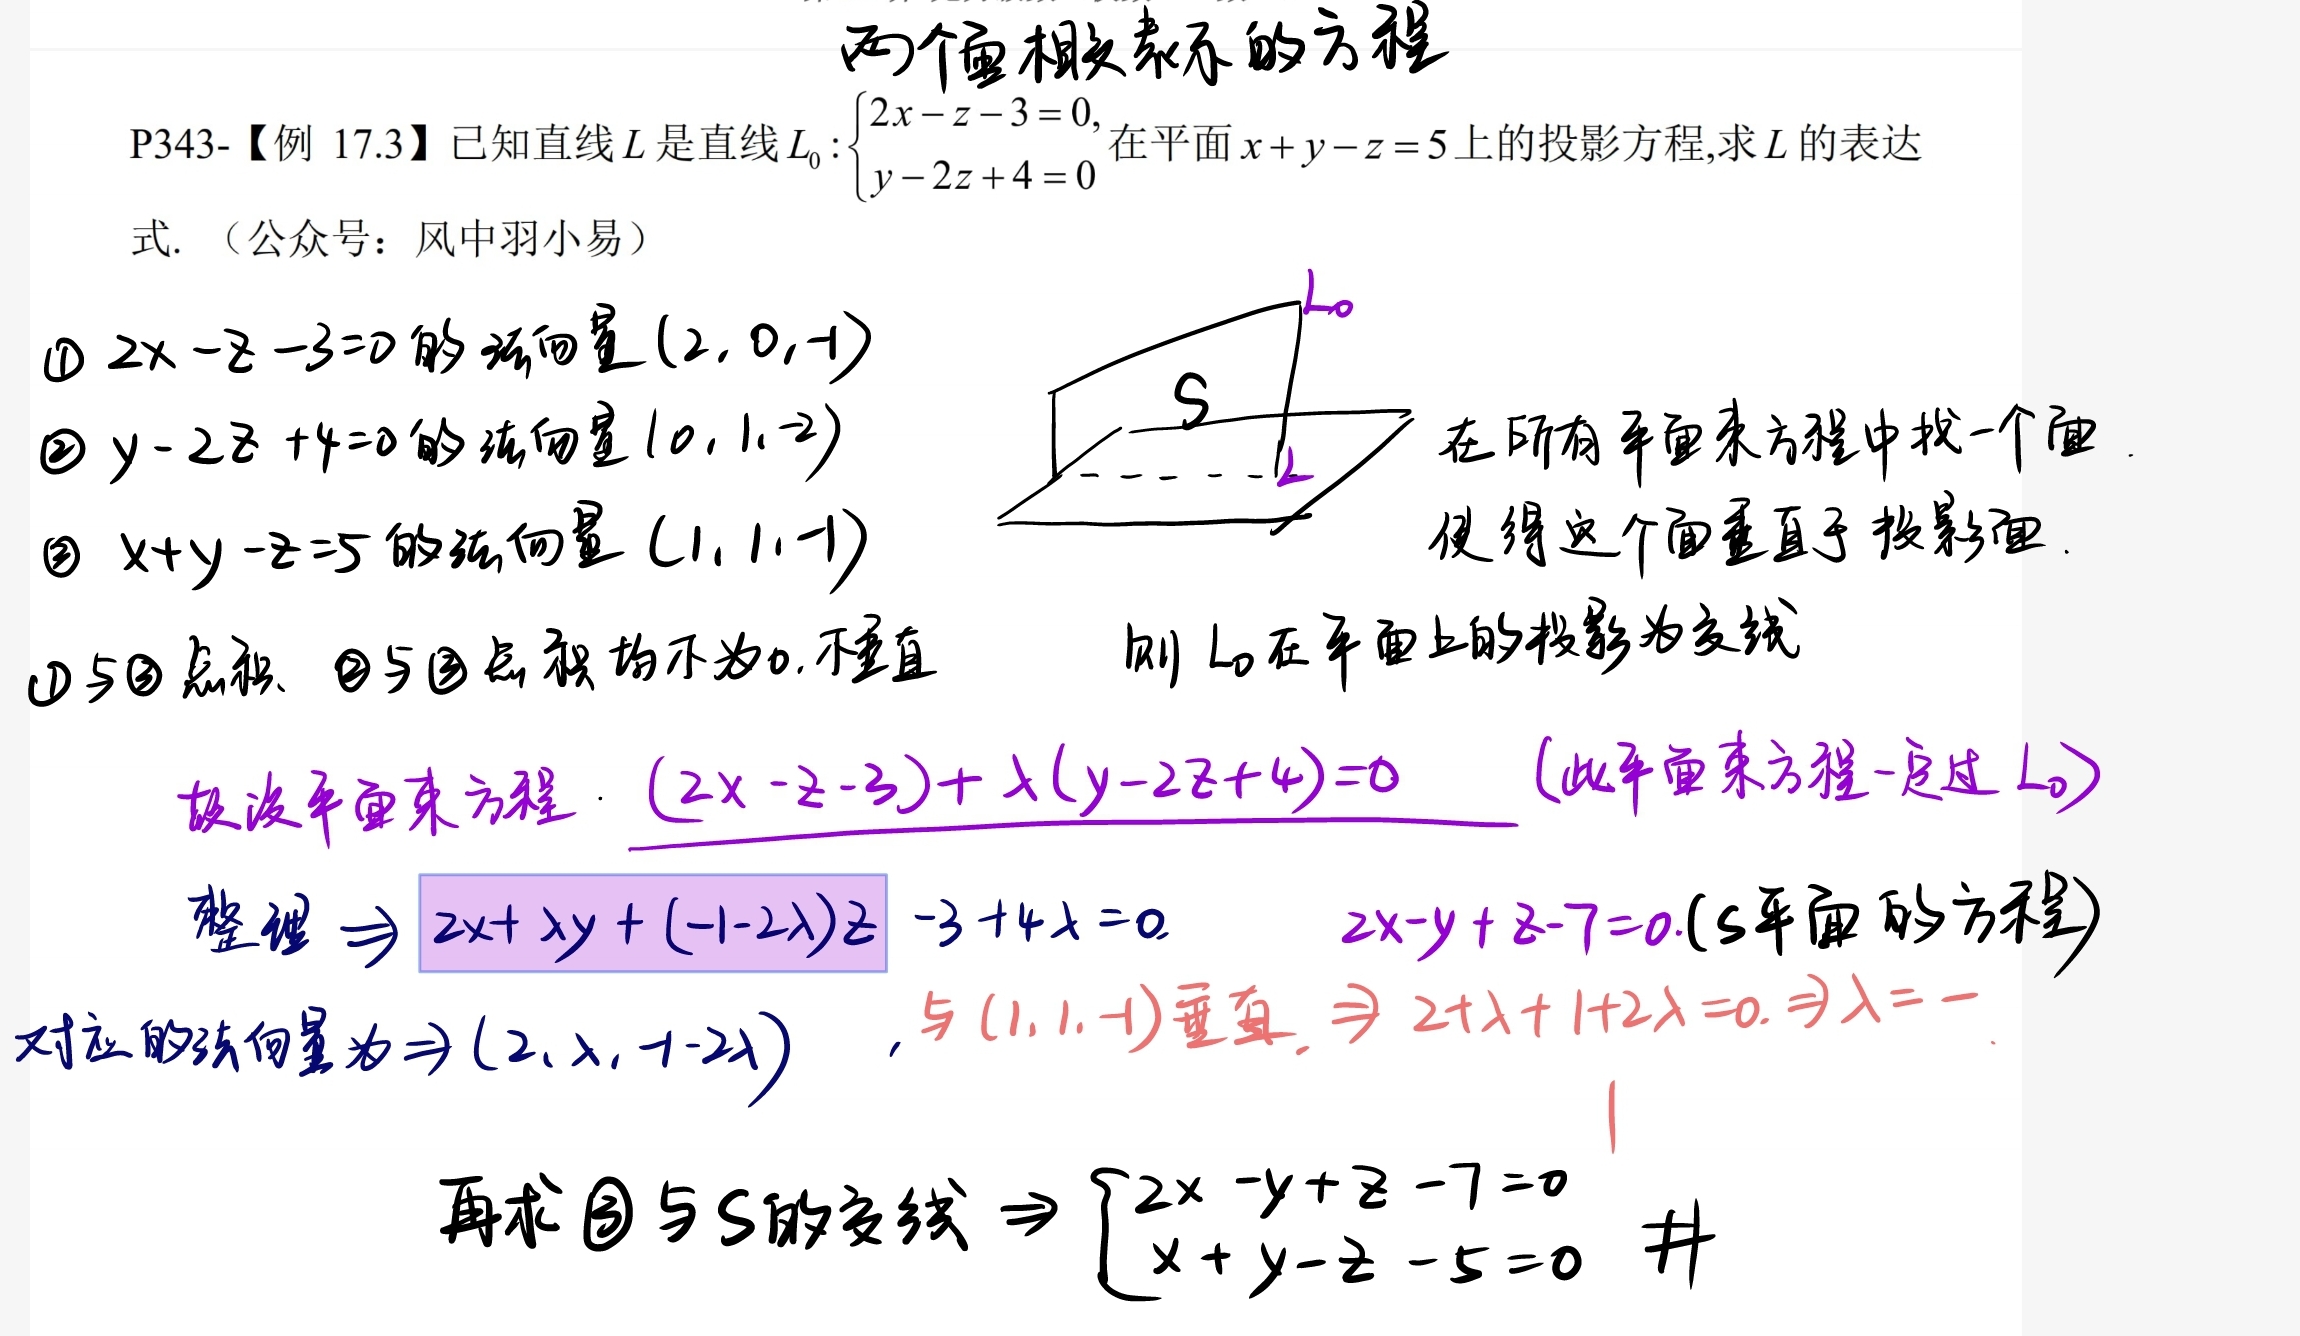 两个面相交表示的方程
P343-【例 17.3】已知直线 L 是直线 L₀ : { 2x − z − 3 = 0, y − 2z + 4 = 0 在平面 x + y − z = 5 上的投影方程,求 L 的表达
式. （公众号：风中羽小易）
① 2x - z - 3 = 0 的法向量 (2, 0, -1)
② y - 2z + 4 = 0 的法向量 (0, 1, -2)
③ x + y - z = 5 的法向量 (1, 1, -1)
L₀
S
L
在所有平面束方程中找一个面.
使得这个面垂直于投影面.
①与③点积、②与③点积均不为0.不垂直
则 L₀ 在平面上的投影为交线
故设平面束方程. (2x - z - 3) + λ(y - 2z + 4) = 0 (此平面束方程一定过 L₀)
整理 ⇒ 2x + λy + (-1-2λ)z - 3 + 4λ = 0. 2x - y + z - 7 = 0.(S平面的方程)
对应的法向量为 ⇒ (2, λ, -1-2λ) , 与 (1, 1, -1) 垂直. ⇒ 2+λ+1+2λ=0. ⇒ λ = -
1
再求③与S的交线 ⇒ { 2x - y + z - 7 = 0
x + y - z - 5 = 0 #